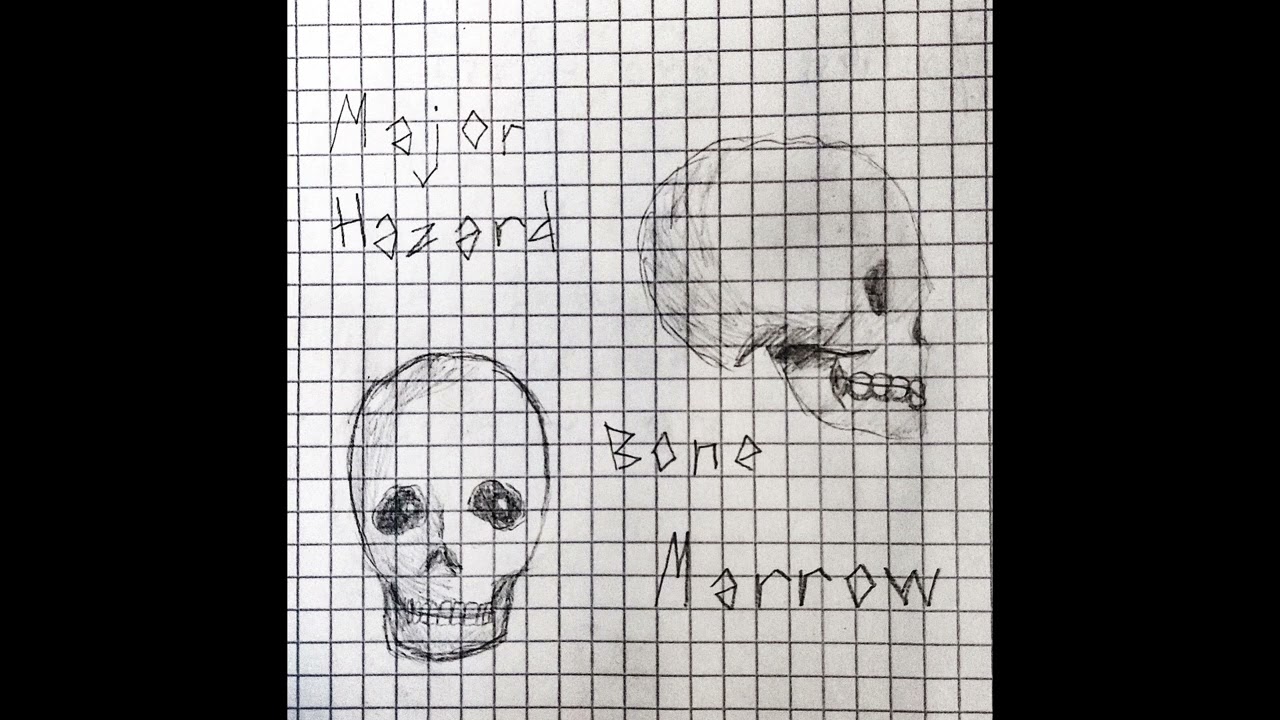 Major
Hazard
Bone
Marrow